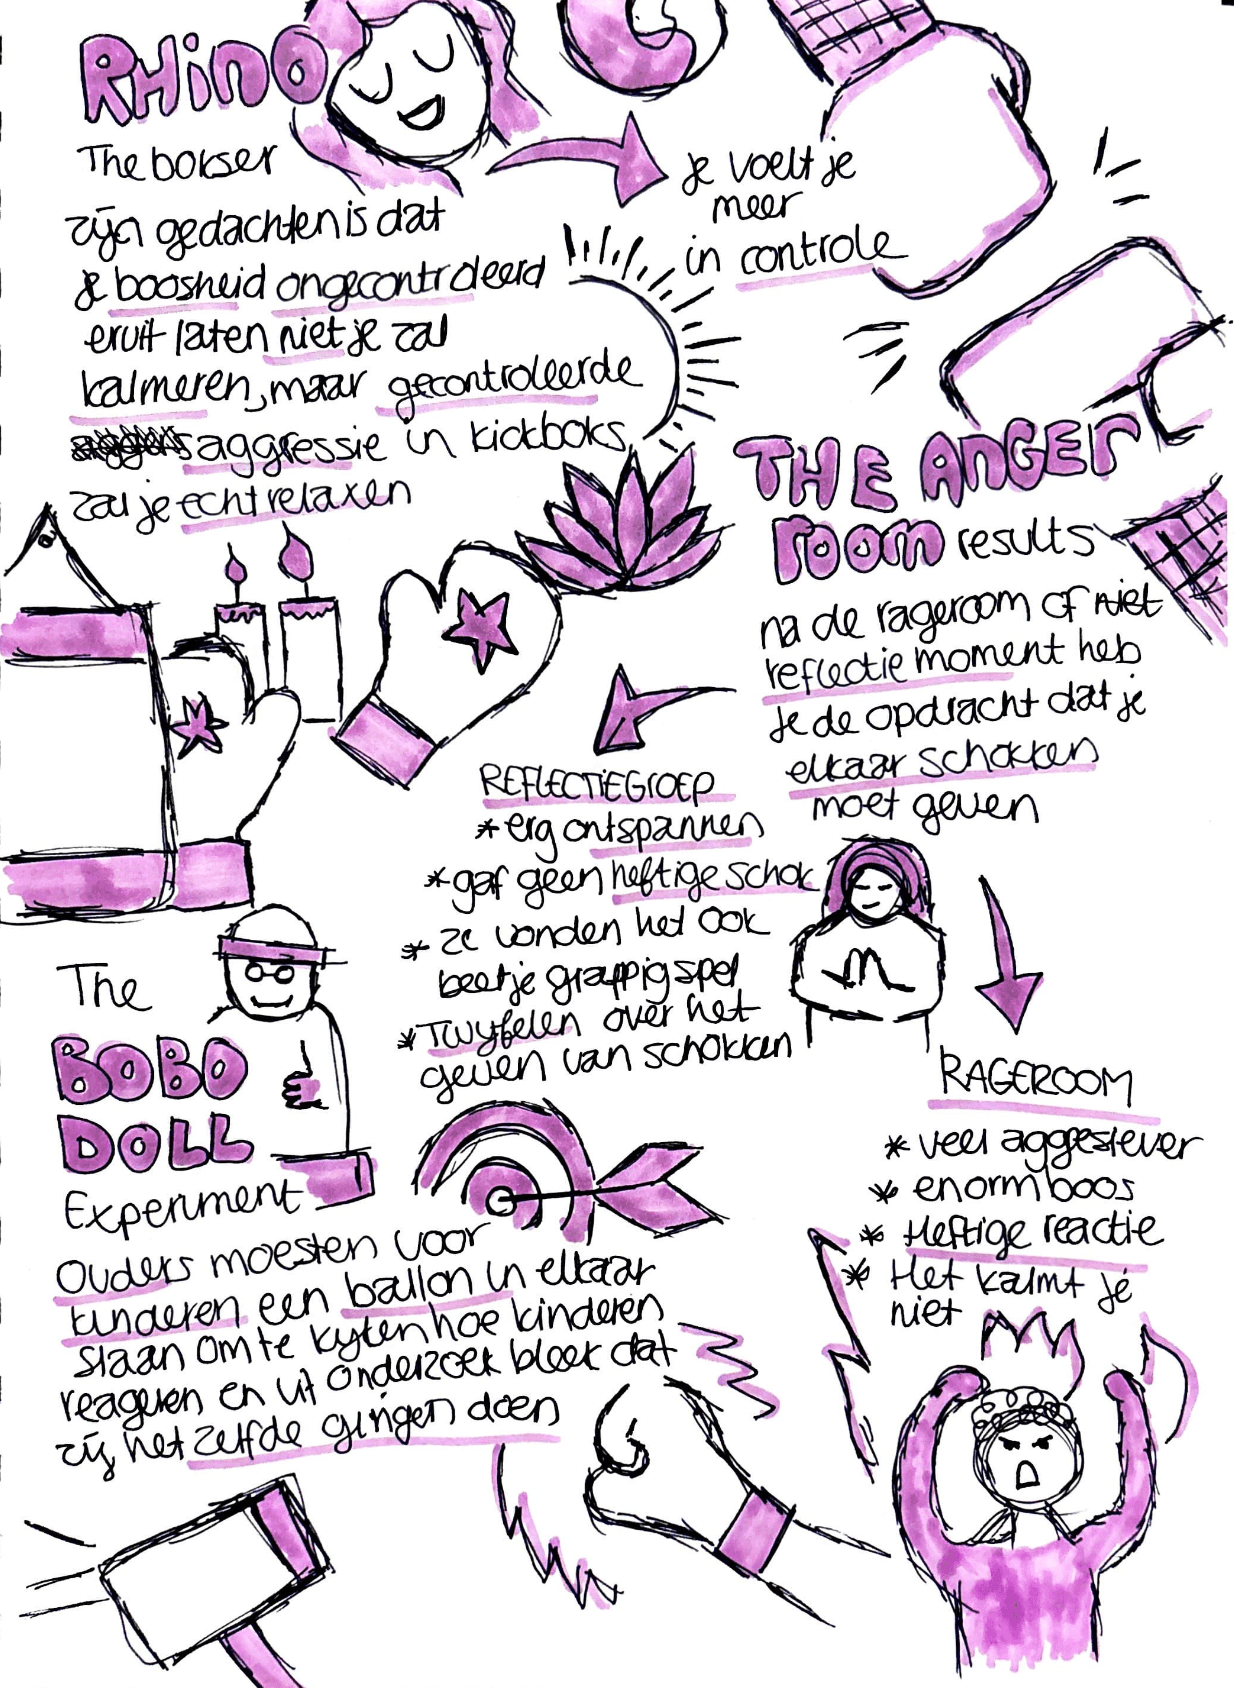 RHiNO
The bokser
zijn gedachten is dat
je boosheid ongecontroleerd
eruit laten niet je zal
kalmeren, maar gecontroleerde
aggressie in kickboks
zal je echt relaxen
je voelt je
meer
in controle
THE ANGER
room results
na de rageroom of niet
reflectie moment heb
je de opdracht dat je
elkaar schokken
moet geven
REFLECTiEGroEP
* erg ontspannen
* gaf geen heftige schok
* ze vonden het ook
beetje grappig spel
* Twyfelen over het
geven van schokken
RAGEROOM
* veel aggesiever
* enorm boos
* Heftige reactie
* Het kalmt je
niet
The
BOBO
DOLL
Experiment
Ouders moesten voor
kinderen een ballon in elkaar
slaan om te kyken hoe kinderen
reageren en uit onderzoek bleek dat
zij het zelfde gingen doen